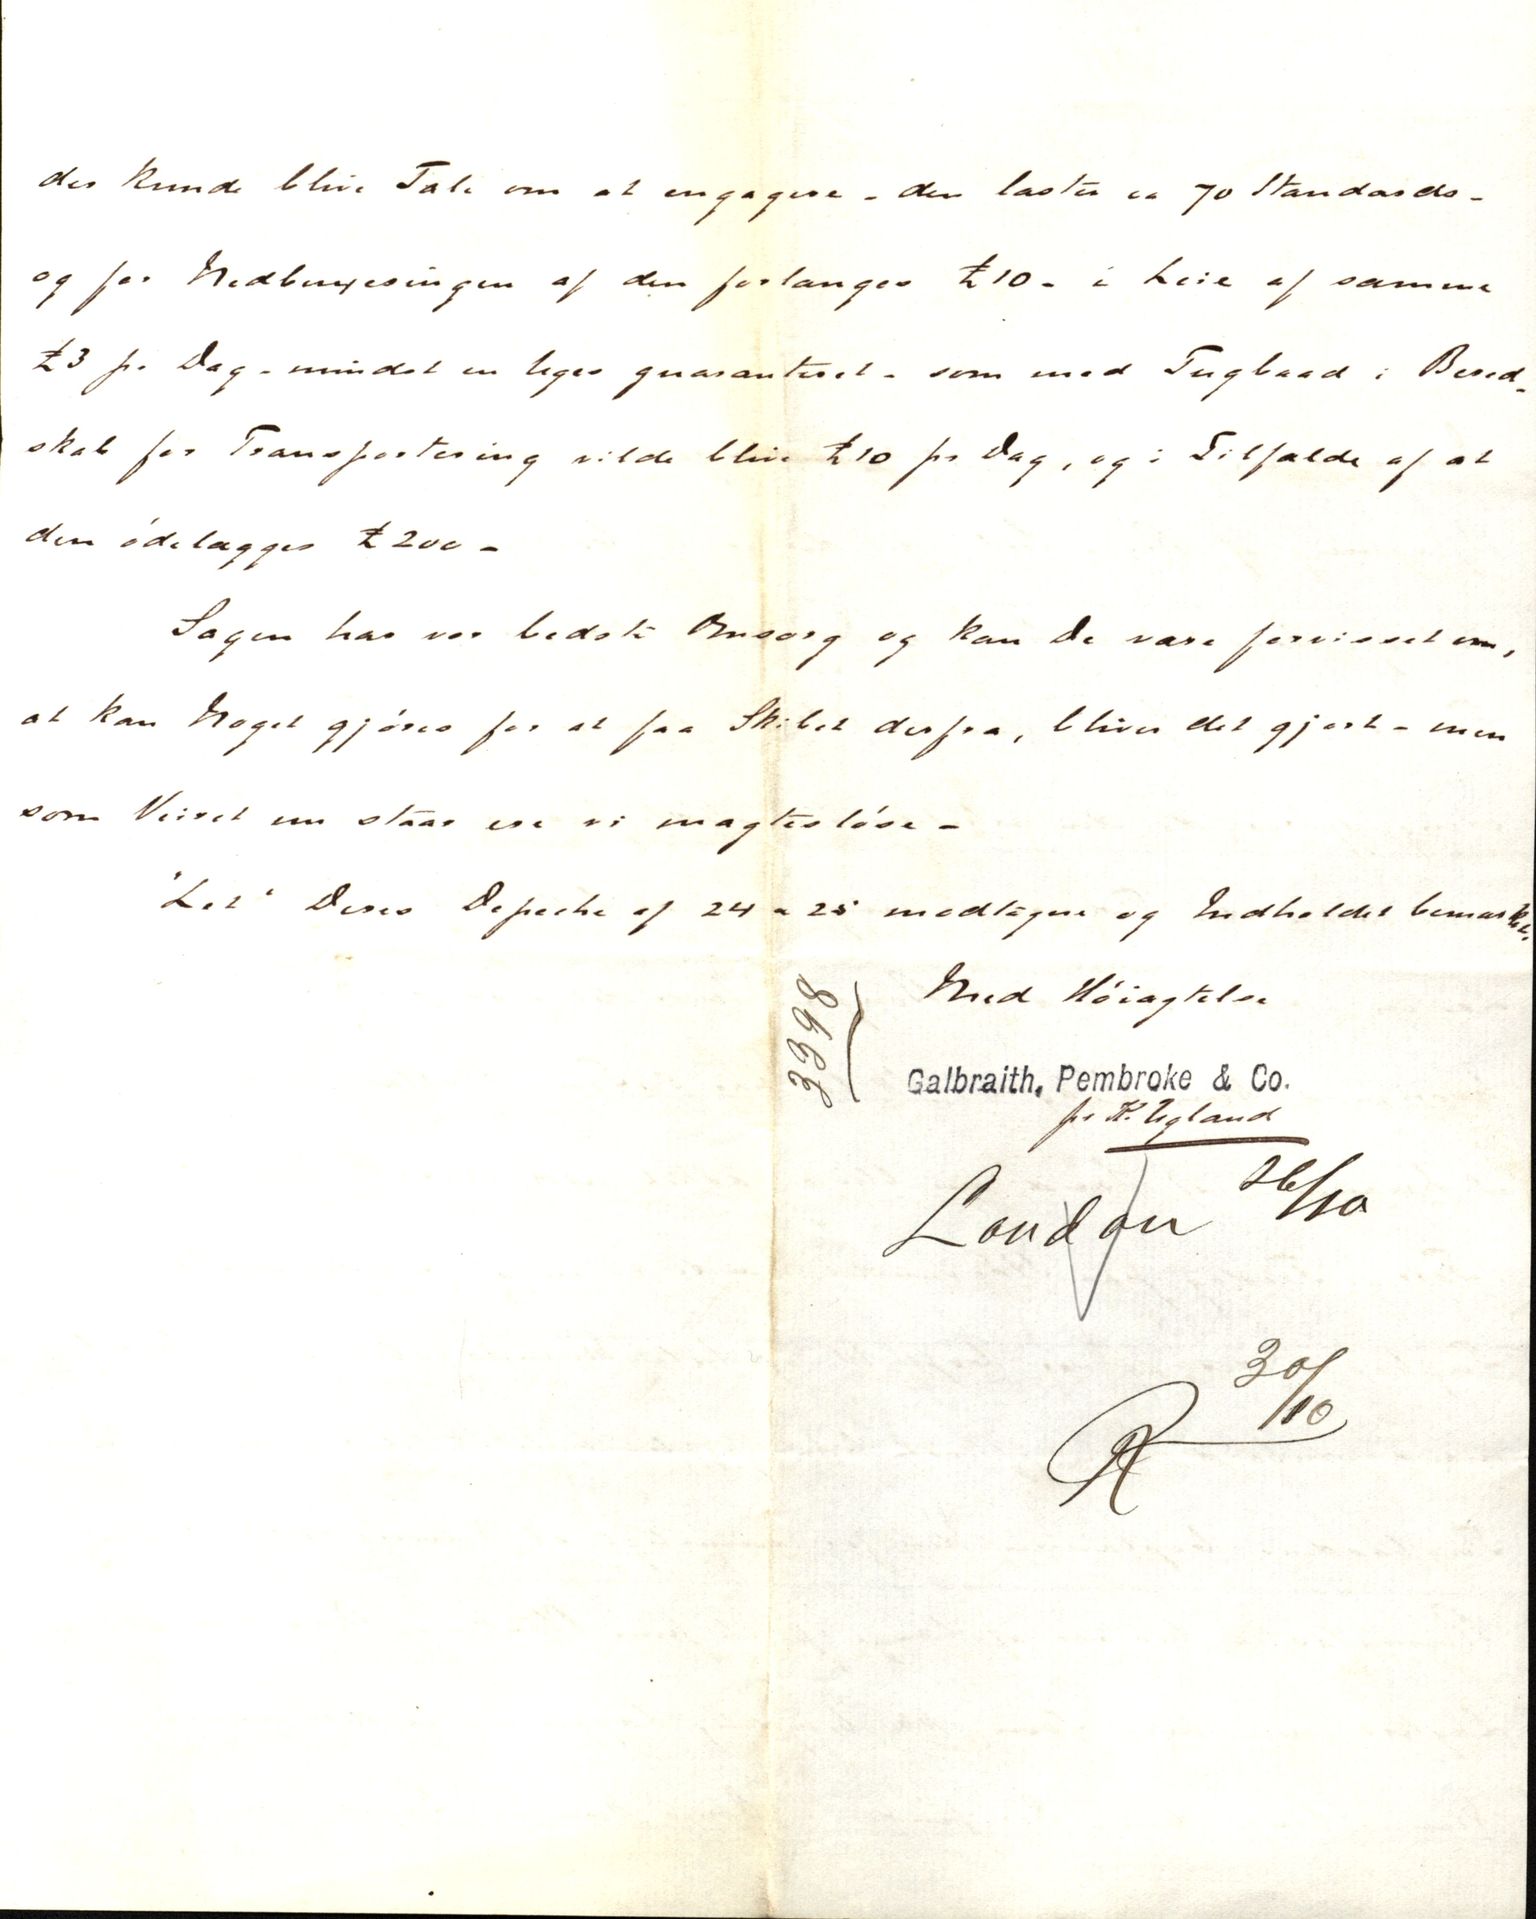 der kunde blive Tale om at engagere - den laster ca 70 Standards -
og for Nedbuxeringen af den forlanges £10 - i Leie af samme
£3 pr Dag - mindst en Uges guaranteret - som med Tugbaad i Bered-
skab for Transportering vilde blive £10 pr Dag, og i Tilfælde af at
den ödelægges £200 -
Sagen har vor bedste Omsorg og kan De være forvisset om,
at kan Noget gjöres for at faa Skibet derfra, bliver det gjort - men
som Veiret nu staar ere vi magteslöse -
"Let" Deres Depeche af 24 & 25 modtagne og Indholdet bemærket.
Med Höiagtelse
3398
Galbraith, Pembroke & Co.
pr K. Ugland
London 26/10
30/10